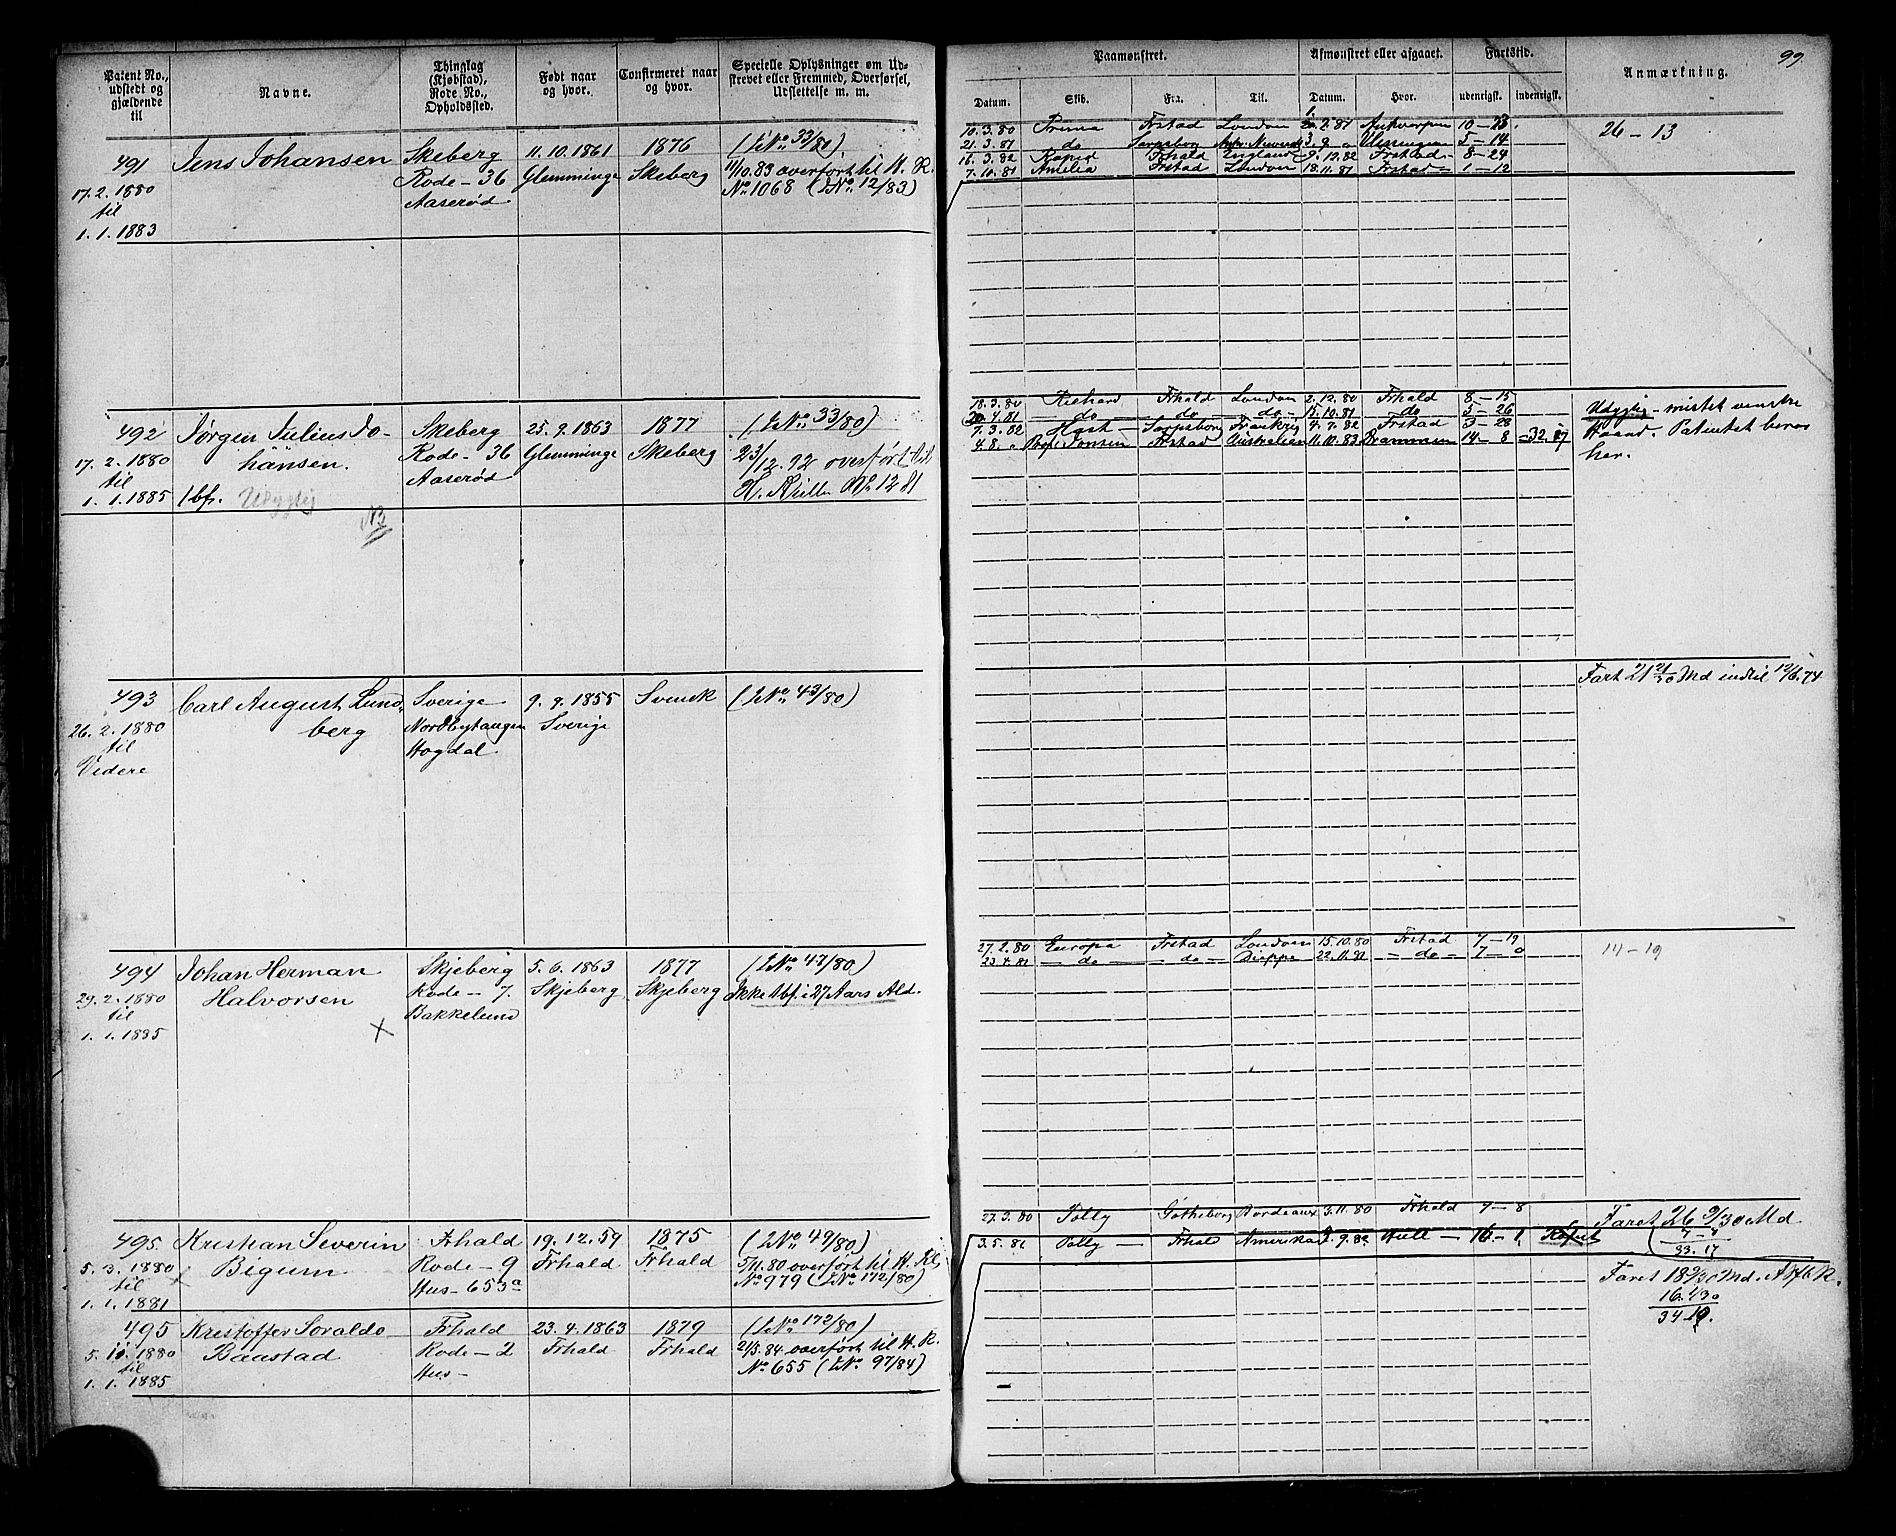 99
Patent No., udstedt og gjældende til
Navne.
Thinglag (Kjøbstad), Rode No., Opholdssted.
Født naar og hvor.
Confirmeret naar og hvor.
Specielle Oplysninger om Udskrevet eller Fremmed, Overførsel, Udslettelse m. m.
Paamønstret.
Afmønstret eller afgaaet.
Fartstid.
Anmærkning.
Datum. Skib. Fra. Til. Datum. Hvor. udenrigsk. indenrigsk.
491 Jens Johansen Skeberg 11.10.1861 1876 (LNo 33/80)
17.2.1880 Rode - 36 Glemminge Skeberg 11/10.83 overført til H. R.
til Aaserød No 1068 (LNo 12/83)
1.1.1883
10.3.80 Prima Frstad London 2.81 Antverpen 10 - 26 - 13
21.3.81 do Sarpsborg 5 - 14
16.3.82 Rapid Frhald England 9.12.82 Frstad 8 - 24
7.10.81 Amelia Frstad London 18.11.81 Frstad 1 - 12
492 Jørgen Julius Jo- Skeberg 25.9.1863 1877 (LNo 33/80)
17.2.1880 hansen. Rode - 36 Glemminge Skeberg 23/12.92 overført til
til Aaserød H. Rulle No 1281
1.1.1885 1bf. Udygtig
NB
18.3.80 Richard Frhald London 2.12.80 Frhald 8 - 15 Udygtig - mistet venstre
20.4.81 do do do 10.81 do 5 - 26 Haand. Patentet beros
7.3.82 Høst Sarpsborg Frankrig 4.7.82 Frstad 3 - 28 her.
4.8. Jonsen Frstad Australien 11.10.83 Drammen 14 - 8
493 Carl August Lund- Sverige 9.9.1855 Svensk (LNo 43/80)
26.2.1880 berg Nordbytangen Sverige
til Hogdal
Videre
Fart 21 21/30 Md indtil 12/6.74
494 Johan Herman Skjeberg 5.6.1863 1877 (LNo 47/80)
29.2.1880 Halvorsen Rode - 7. Skjeberg Skjeberg Ikke 1bf. i 27 Aars Ald.
til X Bakkelund
1.1.1885
27.2.80 Europa Frstad London 15.10.80 Frstad 7 - 19 14 - 19
23.4.81 do do Dieppe 22.11.81 do 7 - 0
495. Kristian Severin Frhald 19.12.59 1875 (LNo 49/80)
5.3.1880 Bigum Rode - 9 Frhald Frhald 5/11.80 overført til H. Rl,
til Hus - 653a No 979 (LNo 172/80)
1.1.1881
27.3.80 Polly Gøtheborg Bordeaux 3.11.80 Frhald 7 - 8 Faret 26 9/30 Md
3.5.82 Polly Frhald Amerika 9.82 Hull 16 - 1
33.17
495 Kristoffer Soraldo Frhald 23.4.1863 1879 (LNo 172/80)
5.11.1880 Baastad Rode - 2 Frhald Frhald 21/5.84 overført til H. R.
til Hus - No 655 (LNo 97/84)
1.1.1885
34 - 10.